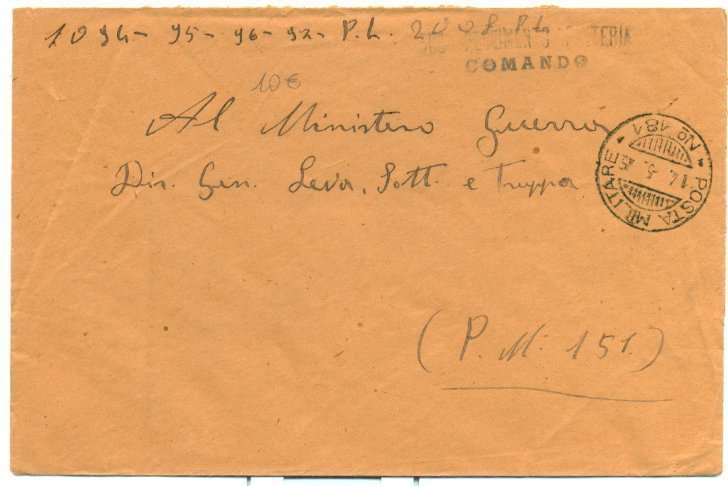 1094-95-96-97-P.L. 2098 P.L.
FANTERIA
COMANDO
10€
Al Ministero Guerra
Dir. Gen. Leva, Sott. e Truppa
POSTA MILITARE Nº 151
14.5.45
(P.M. 151)